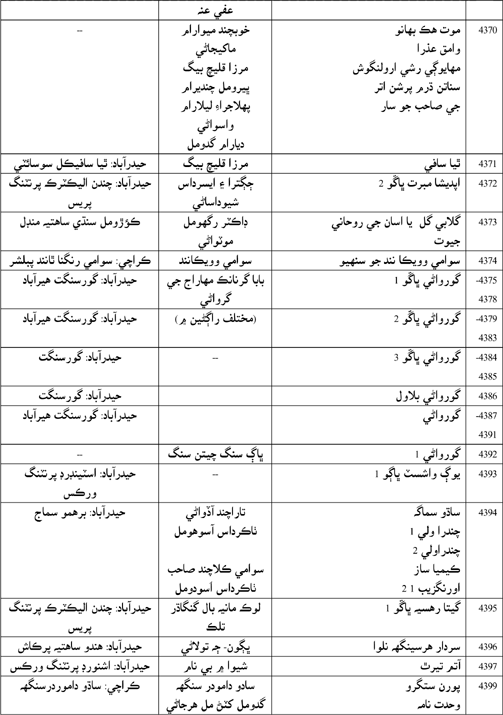 عفي عنہ
4370 موت هڪ بهانو خوبچند ميوارام --
وامق عذرا ماکيجاڻي
مهايوڳي رشي ارولنگوش مرزا قليچ بيگ
سناتن ڌرم پرشن اتر ڀيرومل چنديرام
جي صاحب جو سار پهلاجراءِ ليلارام
واسواڻي
ديارام گدومل
4371 ٿيا سافي مرزا قليچ بيگ حيدرآباد: ٿيا سافيڪل سوسائٽي
4372 اپديشا مبرت ڀاڱو 2 جڳترا ۽ ايسرداس حيدرآباد: چندن اليڪٽرڪ پرنٽنگ
شيوداساڻي پريس
4373 گلابي گل يا اسان جي روحاني ڊاڪٽر رگهومل ڪؤڙومل سنڌي ساهتيہ منڊل
جيوت موٽواڻي
4374 سوامي وويڪا نند جو سنهيو سوامي وويڪانند ڪراچي: سوامي رنگنا ٿانند پبلشر
4375- گورواڻي ڀاڱو 1 بابا گرنانڪ مهاراج جي حيدرآباد: گورسنگت هيرآباد
4378 گرواڻي
4379- گورواڻي ڀاڱو 2 (مختلف راڳڻين ۾) حيدرآباد: گورسنگت هيرآباد
4383
4384- گورواڻي ڀاڱو 3 -- حيدرآباد: گورسنگت
4385
4386 گورواڻي بلاول حيدرآباد: گورسنگت
4387- گورواڻي حيدرآباد: گورسنگت هيرآباد
4391
4392 گورواڻي 1 ڀاڳ سنگ چيتن سنگ --
4393 يوگ واشسٽ ڀاڳو 1 -- حيدرآباد: اسٽينڊرڊ پرنٽنگ
ورڪس
4394 ساڌو سماگہ تاراچند آڏواڻي حيدرآباد: برهمو سماج
چندرا ولي 1 ٺاڪرداس آسوهومل
چندراولي 2
ڪيميا ساز سوامي ڪلاچند صاحب
اورنگزيب 1 2 ٺاڪرداس آسودومل
4395 گيتا رهسيہ ڀاڱو 1 لوڪ مانيہ بال گنگاڌر حيدرآباد: چندن اليڪٽرڪ پرنٽنگ
تلڪ پريس
4396 سردار هرسينگهہ نلوا ڀڳون- چہ تولاڻي حيدرآباد: هندو ساهتيہ پرڪاش
4397 آتم تيرٿ شيوا ۾ بي نام حيدرآباد: اشنورڊ پرنٽنگ ورڪس
4399 پورن ستگرو سادو دامودر سنگهہ ڪراچي: ساڌو دامودرسنگهہ
وحدت نامہ گدومل کٽڻ مل هرجاڻي